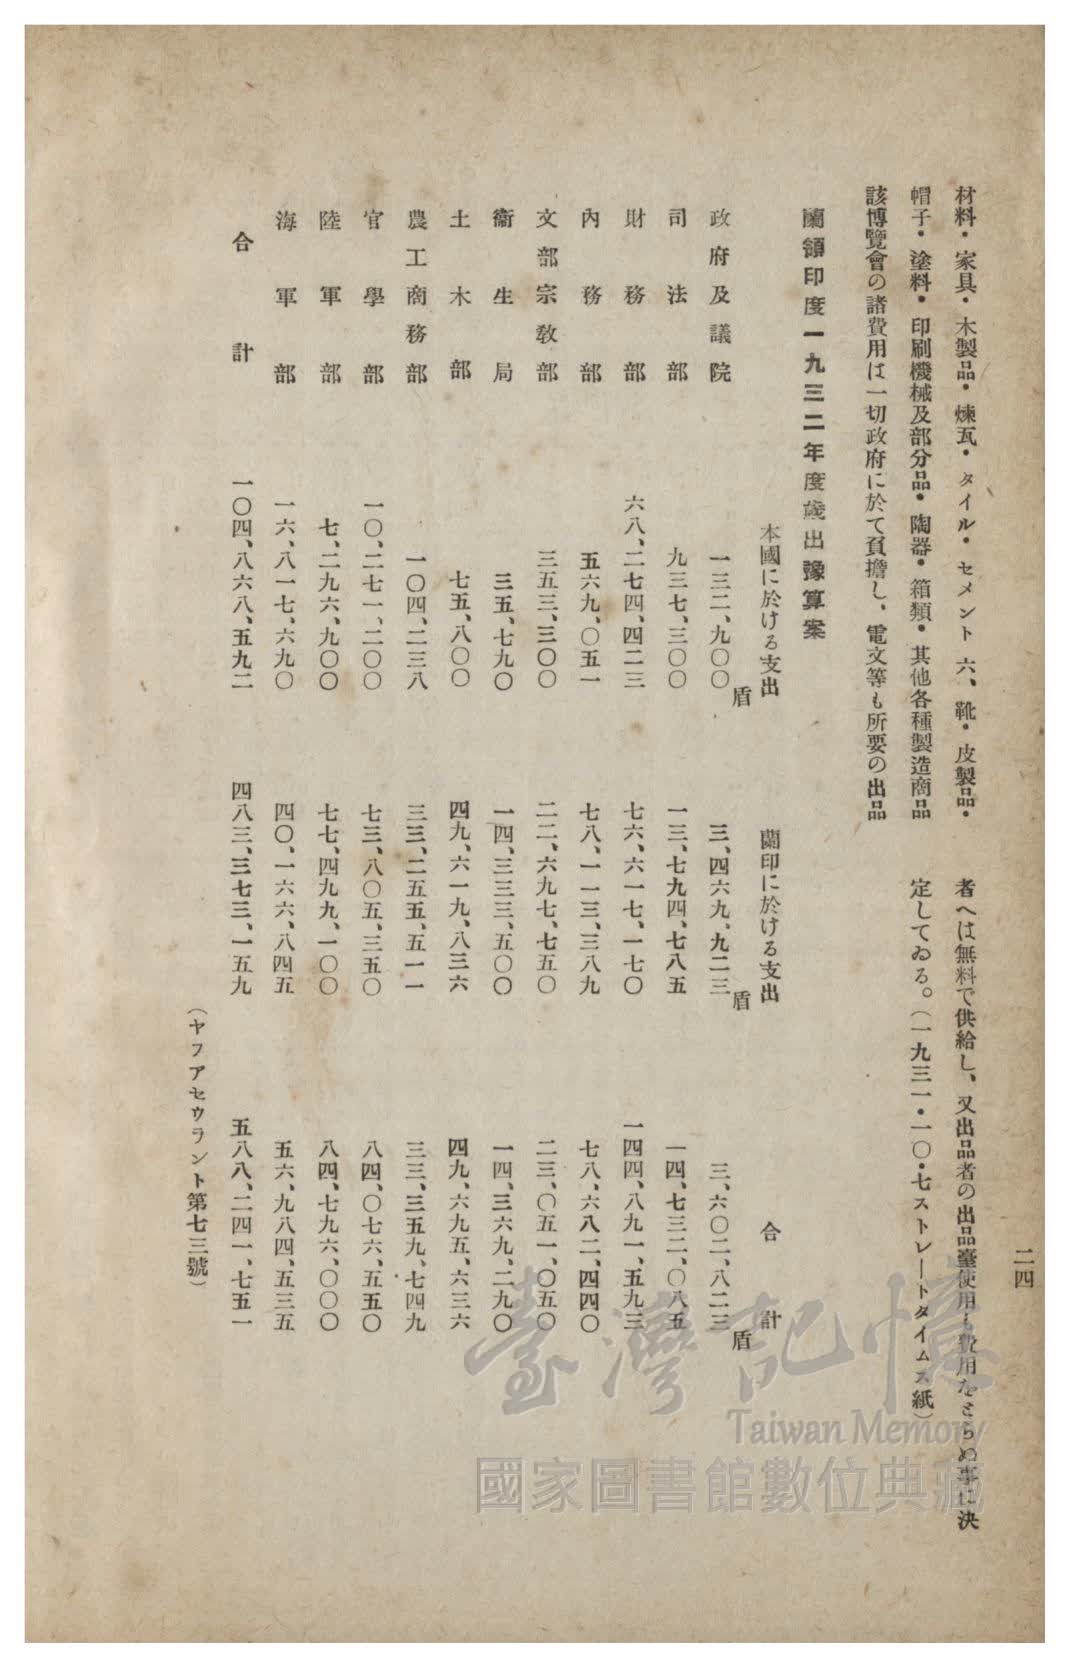 二四
材料・家具・木製品・煉瓦・タイル・セメント 六、靴・皮製品・
帽子・塗料・印刷機械及部分品・陶器・箱類・其他各種製造商品
該博覽會の諸費用は一切政府に於て負擔し、電文等も所要の出品
者へは無料で供給し、又出品者の出品臺使用も費用をとらぬ事に決
定してゐる。(一九三一・一〇・七ストレートタイムス紙)
蘭領印度一九三二年度歲出豫算案
本國に於ける支出 蘭印に於ける支出 合計
盾 盾 盾
政府及議院 一三二、九〇〇 三、四六九、九二三 三、六〇二、八二三
司法部 九三七、三〇〇 一三、七九四、七八五 一四、七三二、〇八五
財務部 六八、二七四、四二三 七六、六一七、一七〇 一四四、八九一、五九三
內務部 五六九、〇五一 七八、一一三、三八九 七八、六八二、四四〇
文部宗敎部 三五三、三〇〇 二二、六九七、七五〇 二三、〇五一、〇五〇
衞生局 三五、七九〇 一四、三三三、五〇〇 一四、三六九、二九〇
土木部 七五、八〇〇 四九、六一九、八三六 四九、六九五、六三六
農工商務部 一〇四、二三八 三三、二五五、五一一 三三、三五九、七四九
官學部 一〇、二七一、二〇〇 七三、八〇五、三五〇 八四、〇七六、五五〇
陸軍部 七、二九六、九〇〇 七七、四九九、一〇〇 八四、七九六、〇〇〇
海軍部 一六、八一七、六九〇 四〇、一六六、八四五 五六、九八四、五三五
合計 一〇四、八六八、五九二 四八三、三七三、一五九 五八八、二四一、七五一
(ヤフアセウラント第七三號)
臺灣記憶
Taiwan Memory
國家圖書館數位典藏